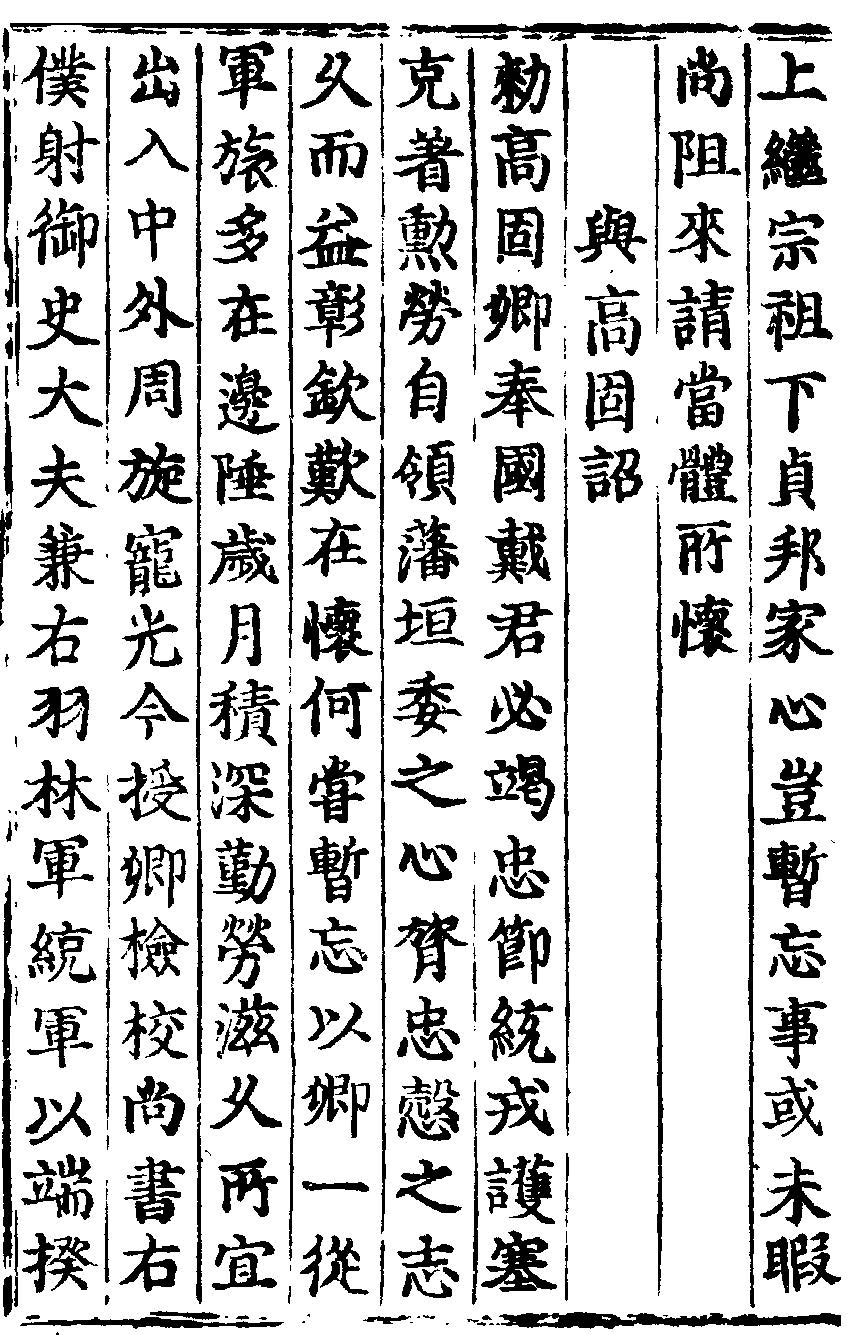 上繼宗祖下貞邦家心豈暫忘事或未暇
尚阻來請當體所懷
與高固詔
勑高固卿奉國戴君必竭忠節統戎護塞
克著勲勞自領藩垣委之心膂忠慤之志
久而益彰欽歎在懷何嘗暫忘以卿一從
軍旅多在邊陲歲月積深勤勞滋久所宜
出入中外周旋寵光今授卿檢校尚書右
僕射御史大夫兼右羽林軍統軍以端揆